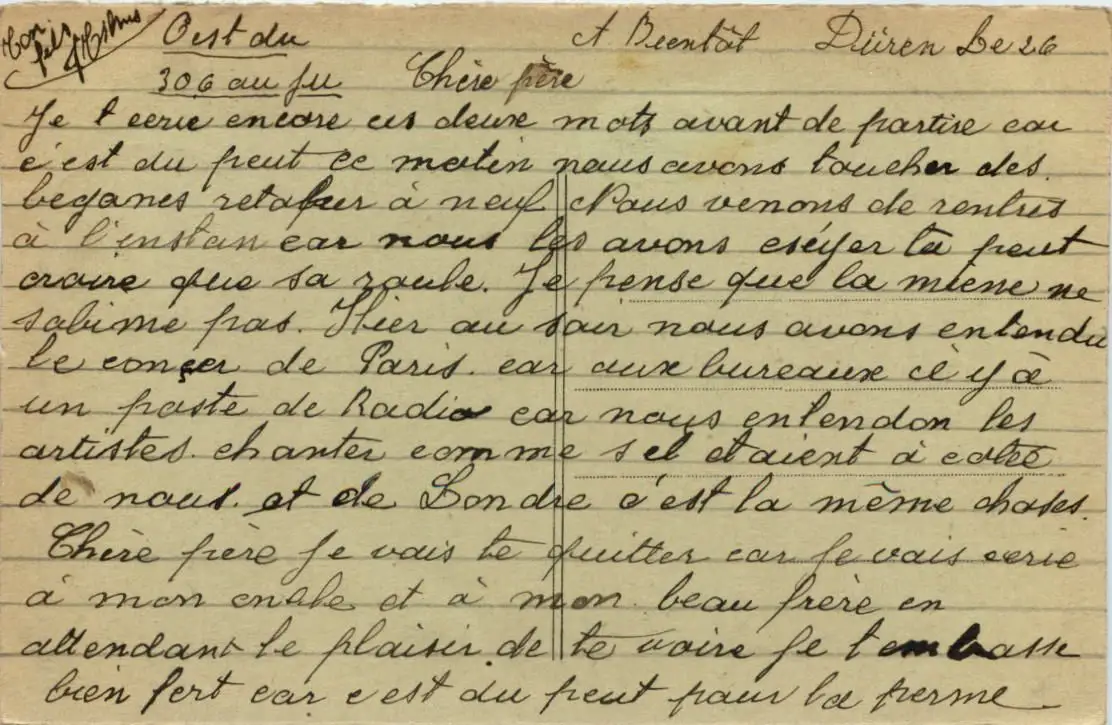 Ton
fils
C'est du A Bientôt Düren Le 26
306 au ju Chère père
Je t ecrie encore ces deux mots avant de partire car
c'est du peut ce matin nous avons toucher des
beganes retaper à neuf Nous venons de rentrés
à l'instan car nous les avons eséyer tu peut
croire que sa roule. Je pense que la miene ne
sabime pas. Hier au soir nous avons entendu
le conçer de Paris. car aux bureaux il y à
un poste de Radio car nous entendon les
artistes chanter comme s'il etaient à cotré
de nous. et de Londre c'est la même choses.
Chère père je vais te quitter car je vais ecrie
à mon oncle et à mon beau frère en
attendant le plaisir de te voire je t'embrasse
bien fort car c'est du peut pour la perme